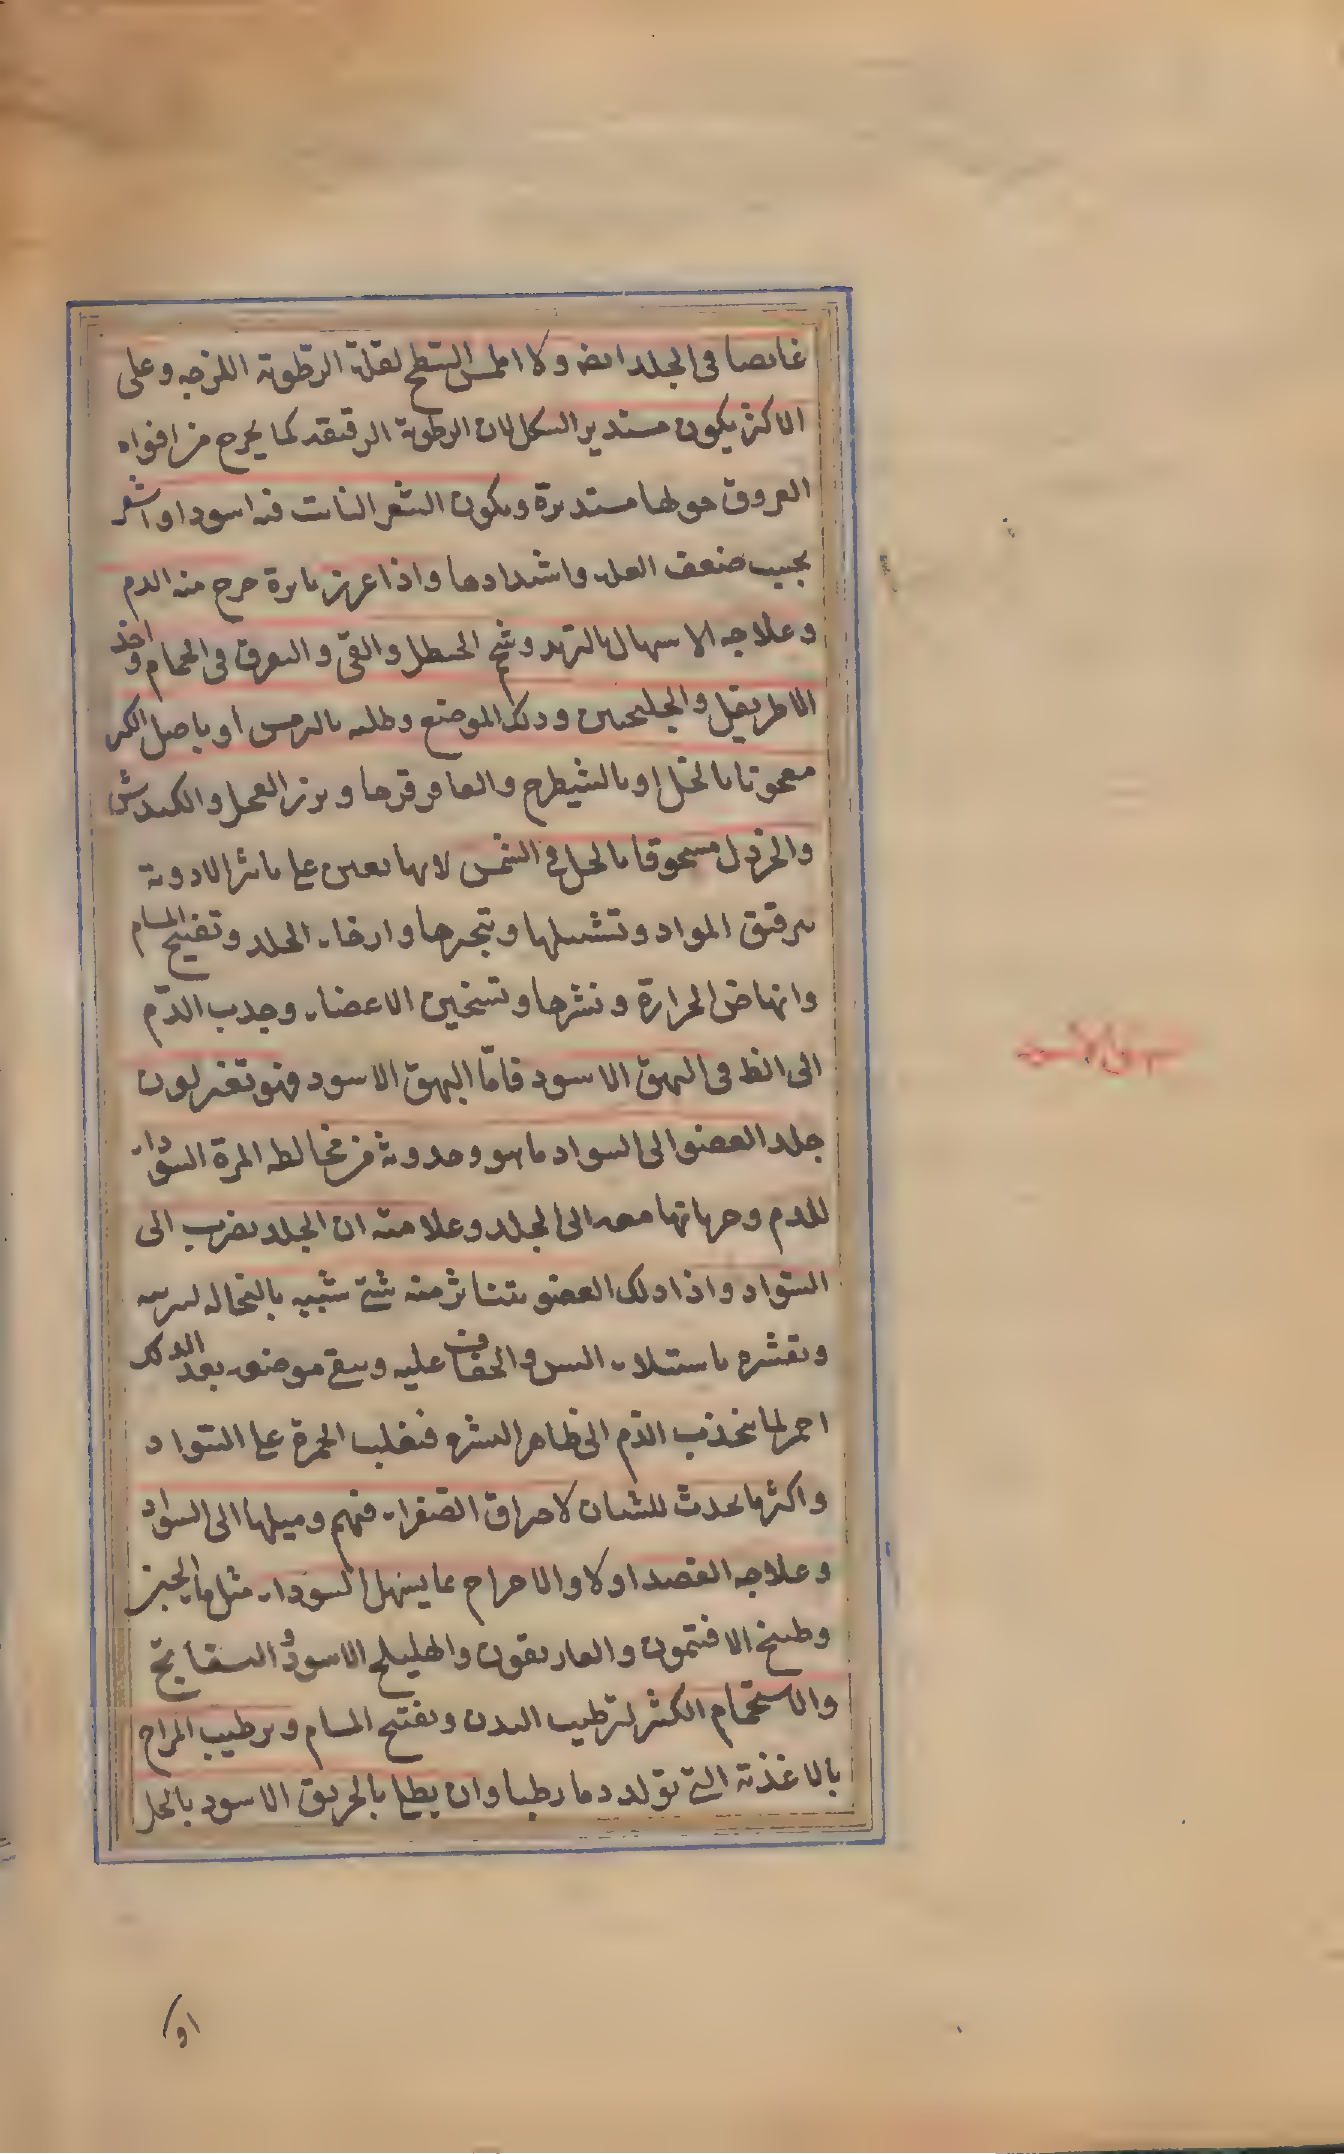 غايصا فى الجلد ابيض ولا املس السطح لقلة الرطوبة اللزجه وعلى
الاكثر يكون مستدير الشكل لان الرطوبة الرقيقه كما يخرج من افواه
العروق حولها مستديرة ويكون الشعر النابت فيه اسود او اشقر
بحسب ضعف العلة واشتدادها واذا غرز بابرة خرج منه الدم
وعلاجه الاسهال بالتربد وشحم الحنظل والقئ والتعرق فى الحمام واخذ
الاطريفل والجلنجبين ودلك الموضع وطليه بالترمس او باصل الكبر
معجونا بالخل او بالشيطرج والعاقر قرحا وبزر الفجل والكندش
والخردل مسحوقا بالخل فى الشمس لانها تعين على تاثر الادوية
بترقيق المواد وتسييلها وتبخيرها وارخاء الجلد وتفتيح المسام
وانهاض الحرارة ونشرها وتسخين الاعضاء وجذب الدّم
الى الظ فى البهق الاسود فامّا البهق الاسود فهو تغير لون
جلد العضو الى السواد ما هو وحدوثه من مخالطه المرة السوداء
للدم وجريانها معه الى الجلد وعلامته ان الجلد يضرب الى
السّواد واذا دلك العضو يتناثر منه شئ شبيه بالنخاله
وتقشره باستيلاء اليبس والجفاف عليه ويبقى موضعه بعد الدلك
احمر لما ينجذب الدّم الى ظاهر البشره فتغلب الحمرة على السّواد
واكثر ما يحدث للشبان لاحراق الصّفراء فيهم وميلها الى السواد
وعلاجه الفصد اولا والاخراج بما يسهل السوداء مثل ما الجبن
وطبيخ الافتيمون والغاريقون والهليلج الاسود و البسفايج
والاستحمام الكثير لترطيب البدن وتفتيح المسام وترطيب المزاج
بالاغذية التى تولد دما رطبا وان يطلى بالخربق الاسود بالخل